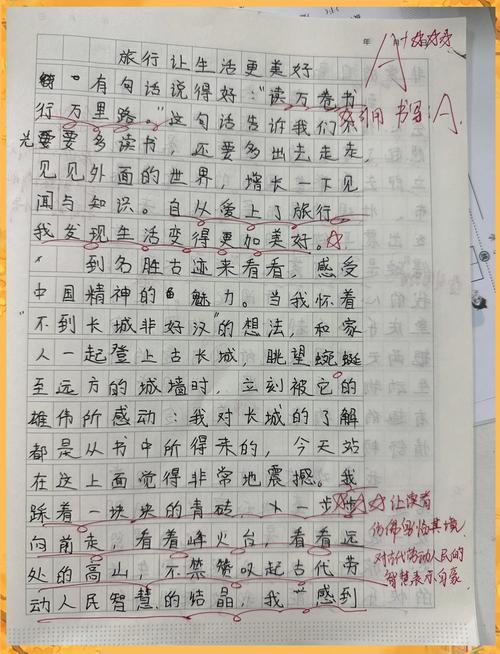 年 月
A+ 好好好
旅行让生活更美好
有句话说得好:“读万卷书
行万里路。”这句话告诉我们不
光要要多读书,还要多出去走走,
引用 书写:A
见见外面的世界,增长一下见
闻与知识。自从爱上了旅行
我发现生活变得更加美好。
到名胜古迹来看看,感受
中国精神的魅力。当我怀着
“不到长城非好汉”的想法,和家
人一起登上古长城,眺望蜿蜒
至远方的城墙时,立刻被它的
雄伟所感动:我对长城的了解
都是从书中所得来的,今天站
在这上面觉得非常地震撼。我
踩着一块块的青砖,一步步
向前走,看着峰火台,看着远
处的高山,不禁赞叹起古代劳
动人民智慧的结晶,我感到
让读者
仿佛身临其境,
对古代劳动人民的
智慧表示自豪